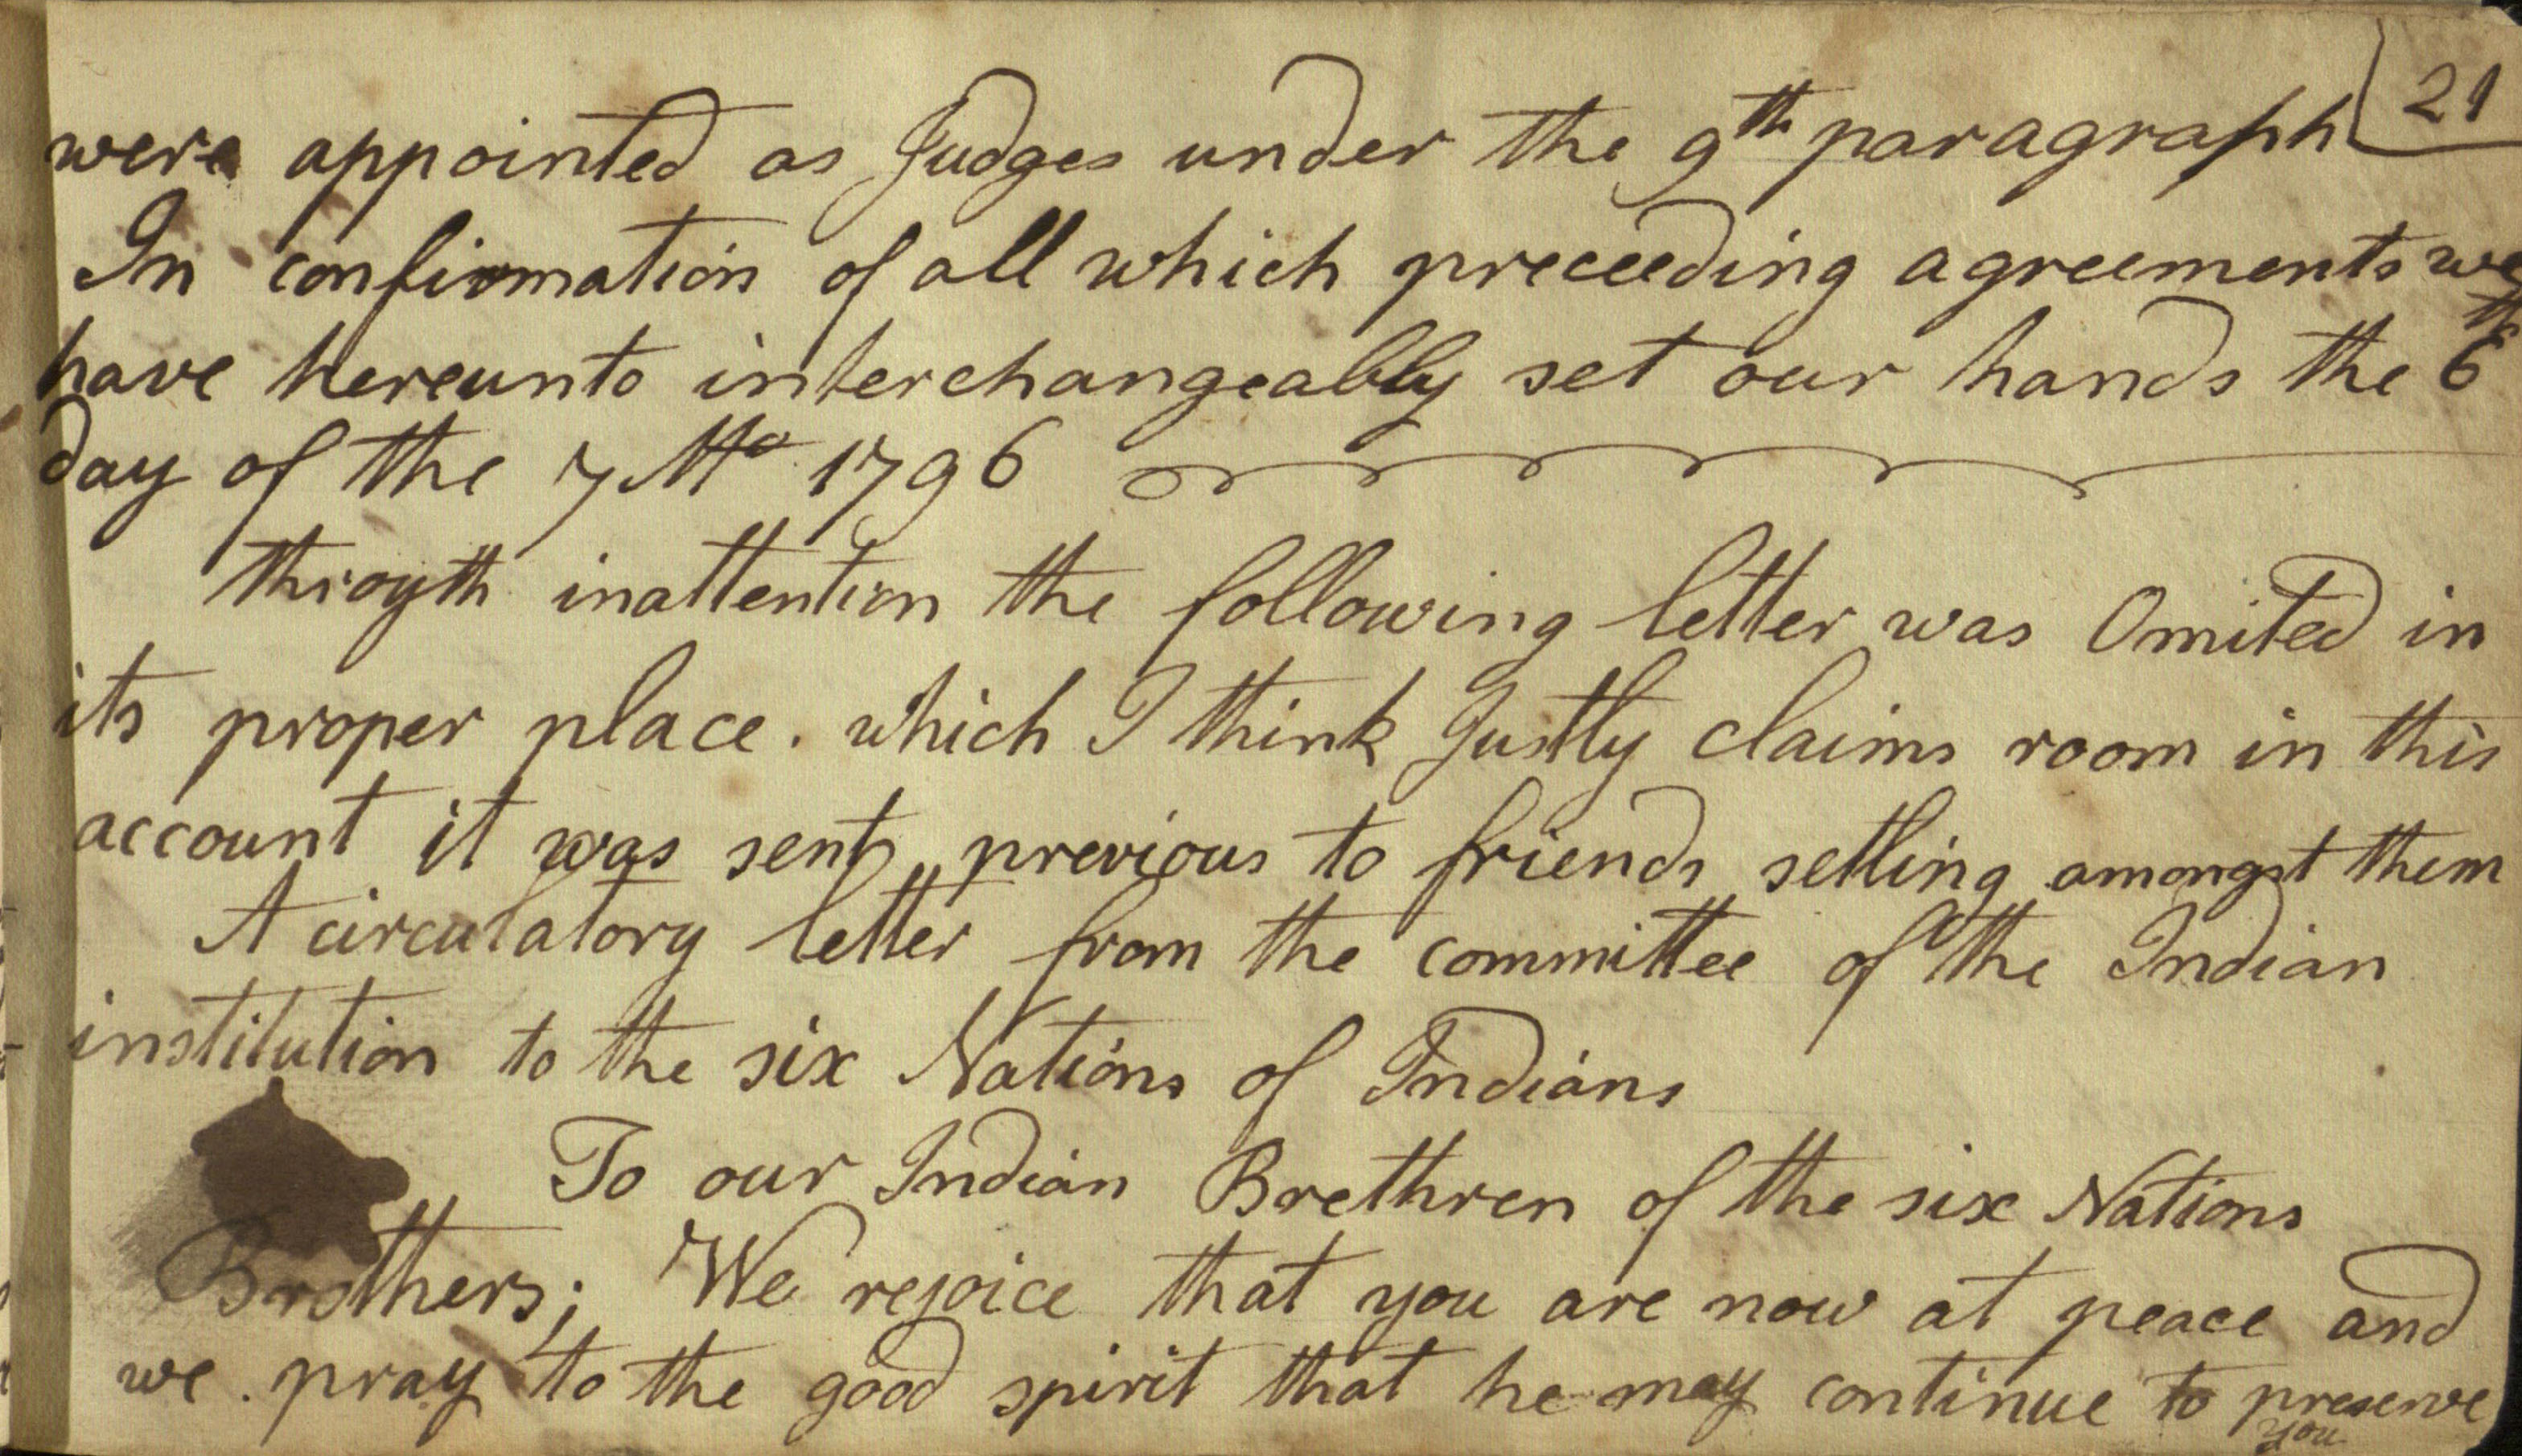 21
were appointed as Judges under the 9th paragraph
In confirmation of all which preceeding agreements we
have hereunto interchangeably set our hands the 6th
day of the 7 Mo 1796
throyth inattention the following letter was Omited in
its proper place. which I think Justly claims room in this
account it was sent previous to friends setling amongst them
A circulatory letter from the committee of the Indian
institution to the six Nations of Indians
To our Indian Brethren of the six Nations
Brothers; We rejoice that you are now at peace and
we pray to the good spirit that he may continue to preserve
you